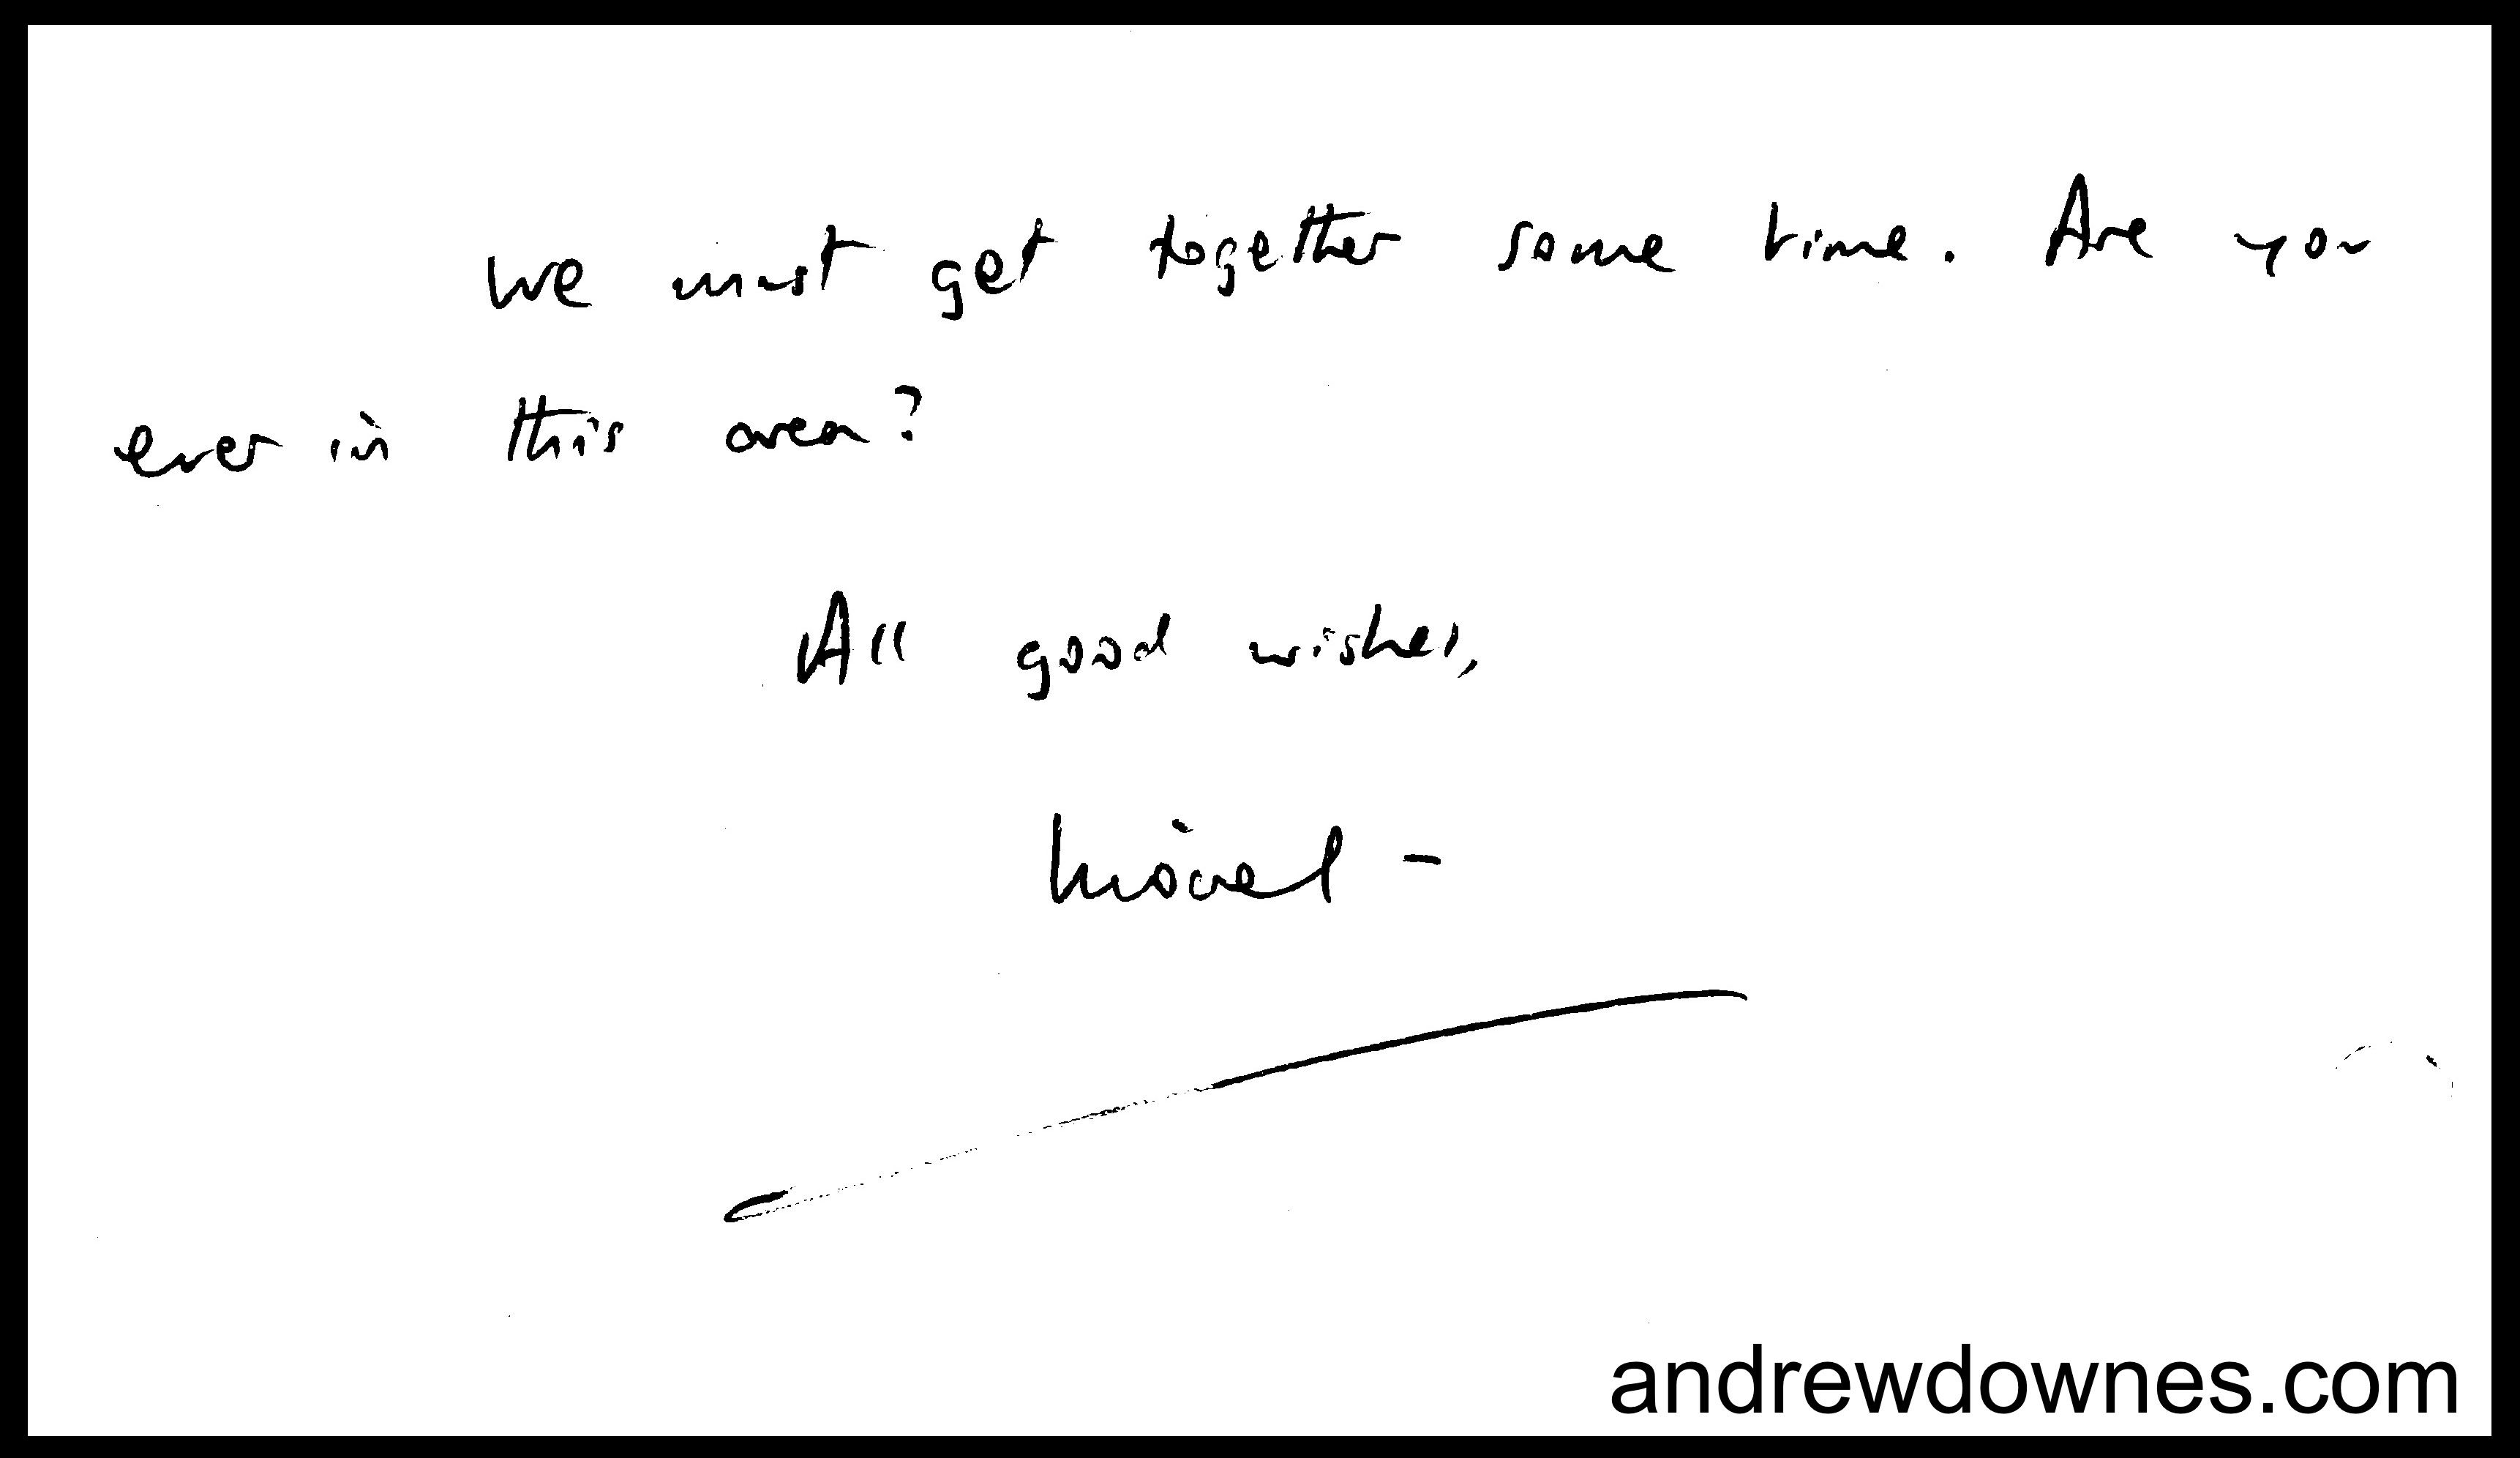 We must get together some time. Are you
ever in this area?
All good wishes,
andrewdownes.com